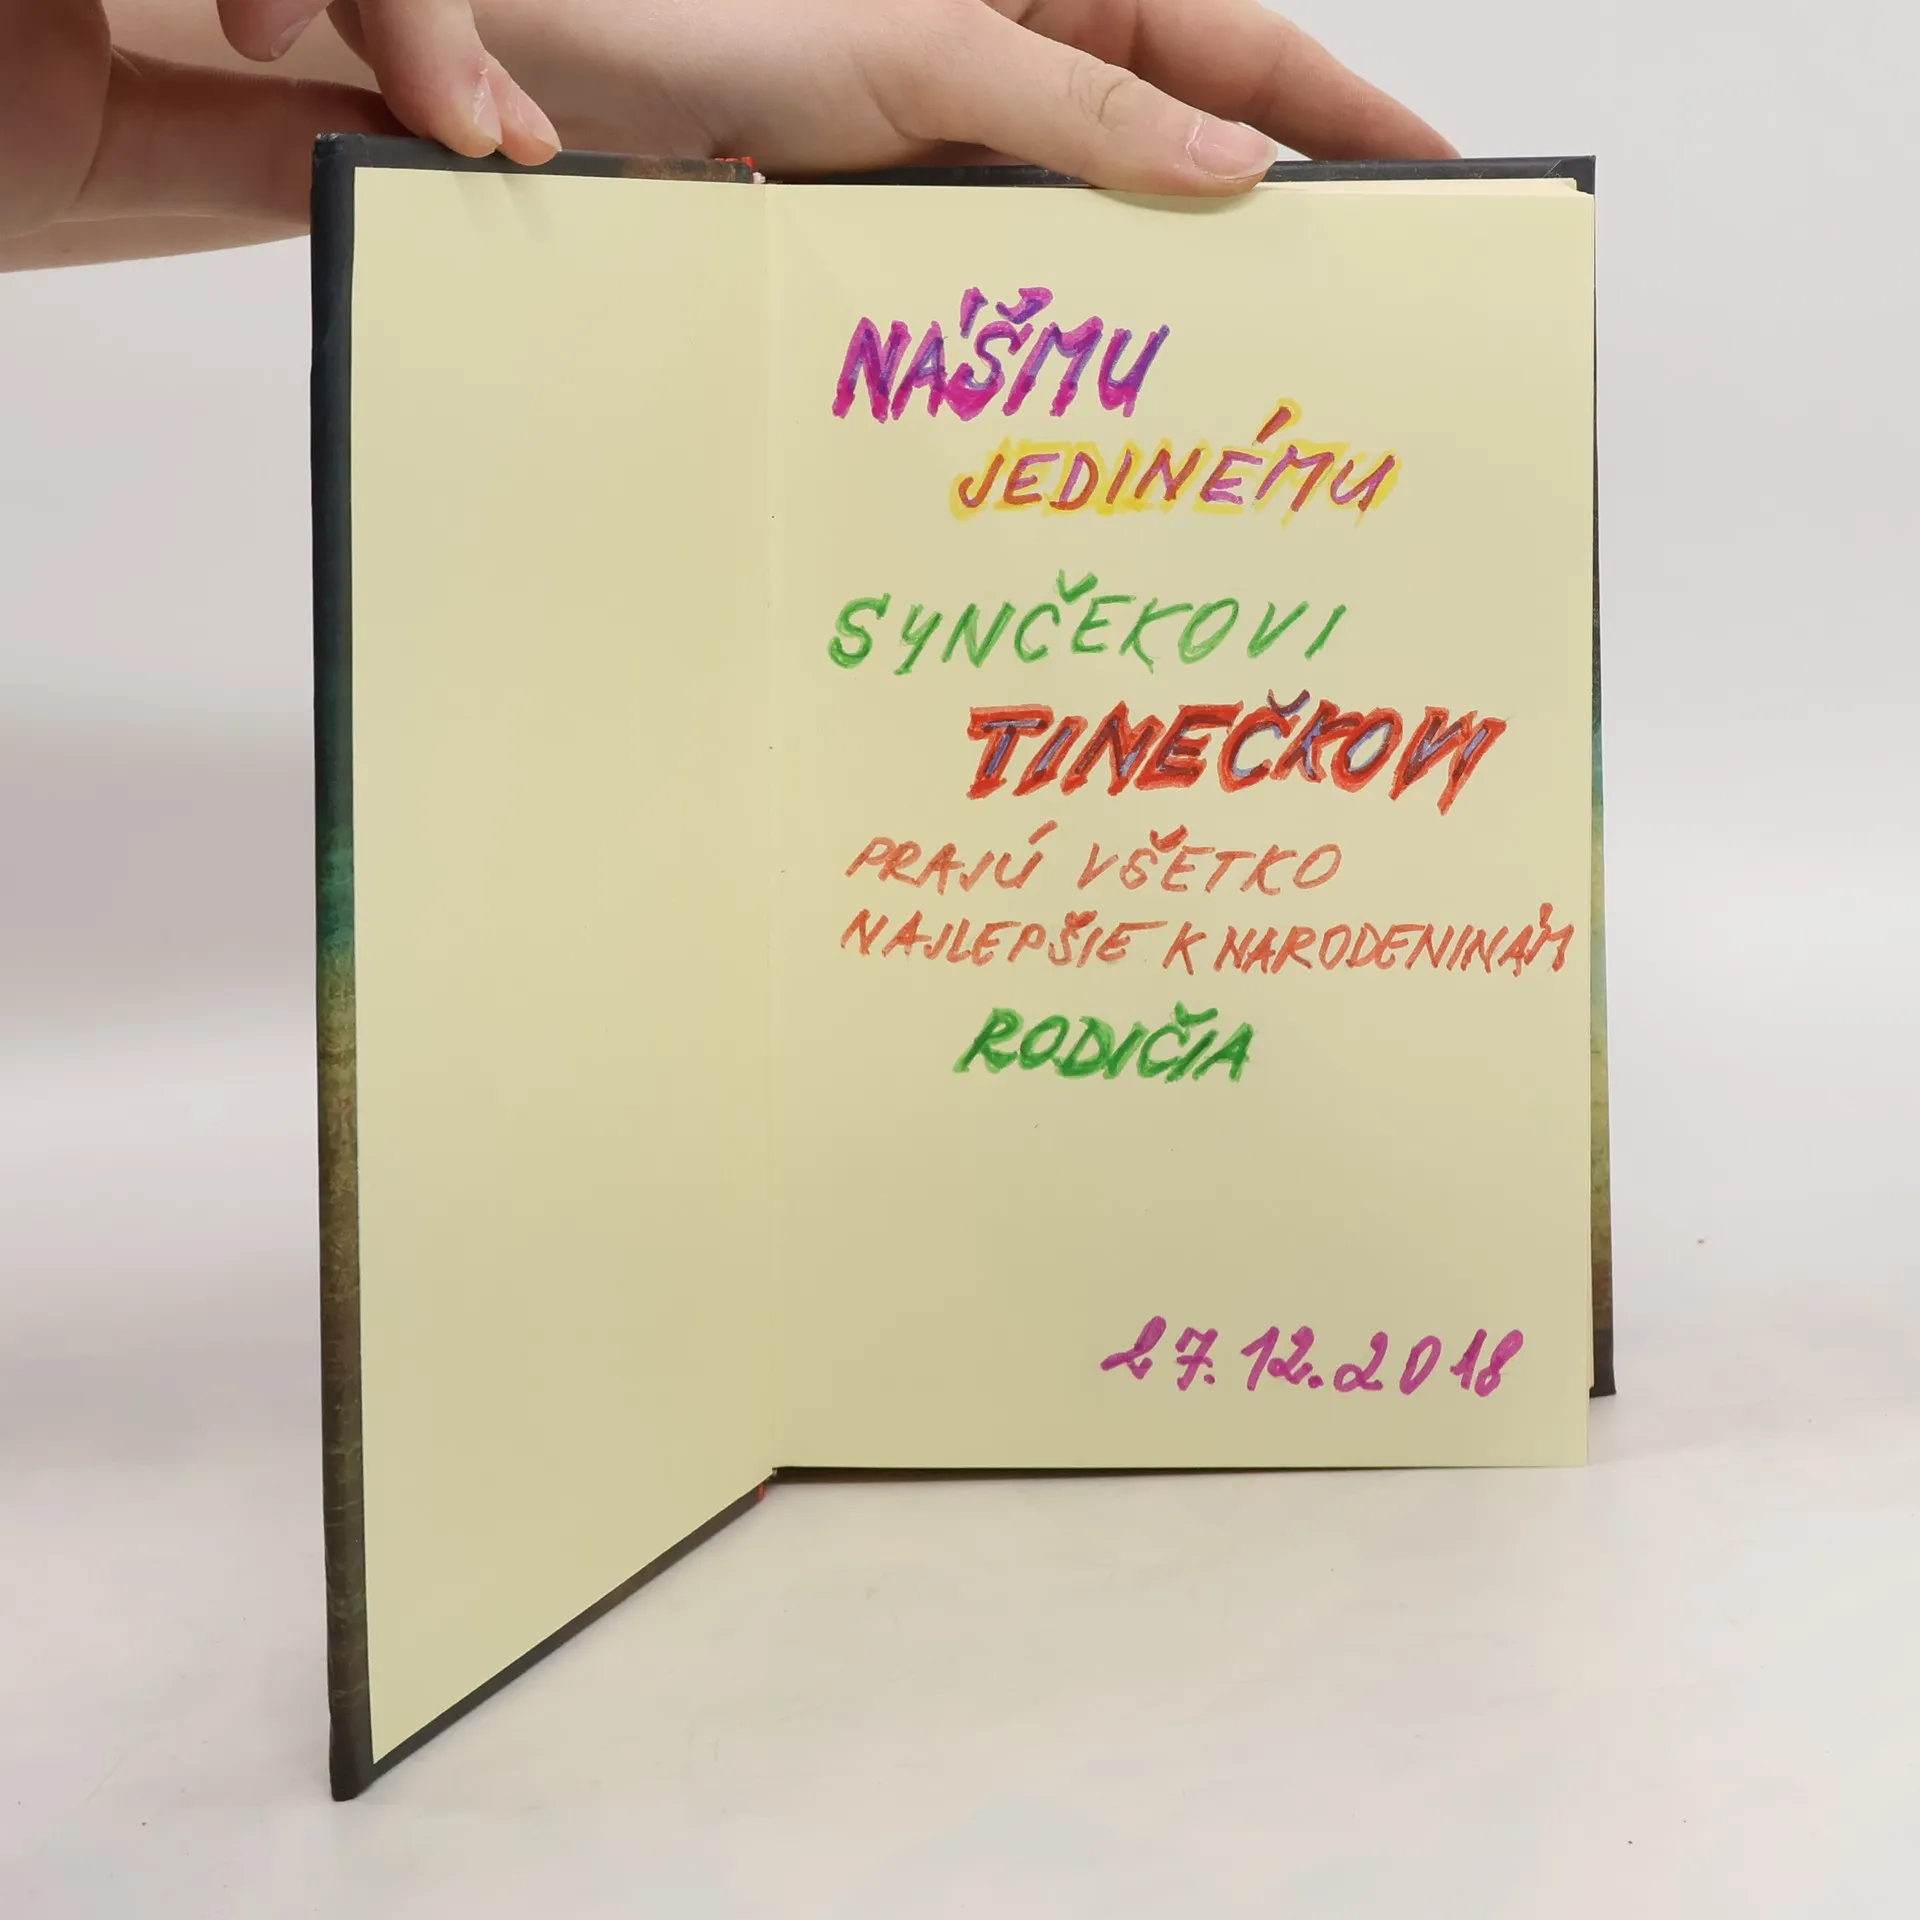 NÁŠMU
JEDINÉMU
SYNČEKOVI
TINEČKOVI
PRAJÚ VŠETKO
NAJLEPŠIE K NARODENINÁM
RODIČIA
27.12.2018